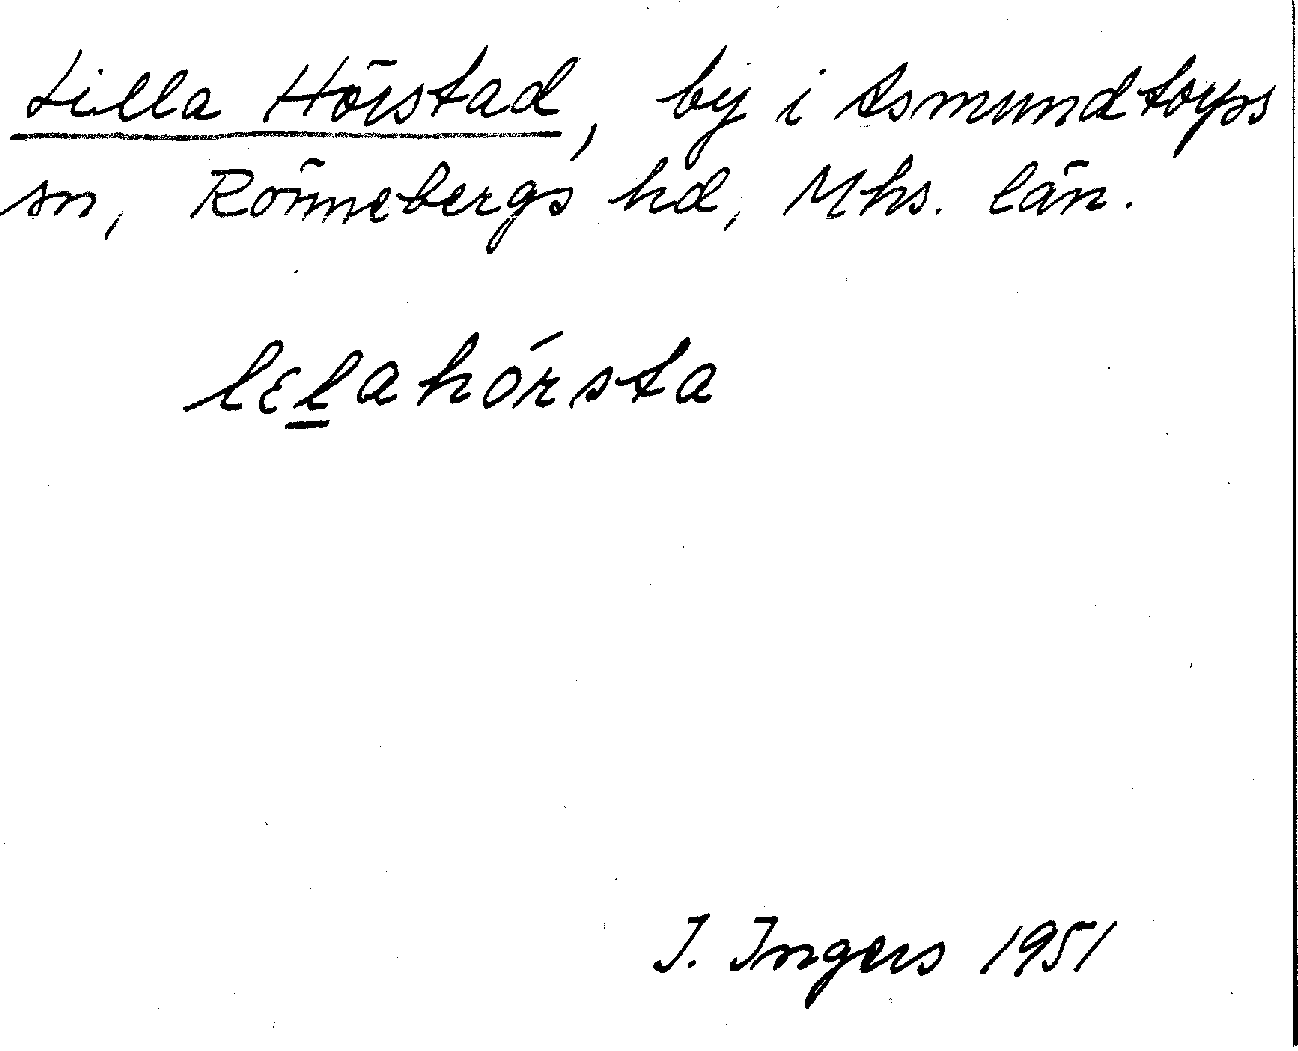 Lilla Hörstad, by i Asmundtorps
sn, Rönnebergs hd, Mhs. län.
lɛl̲ahórsta
I. Ingers 1951